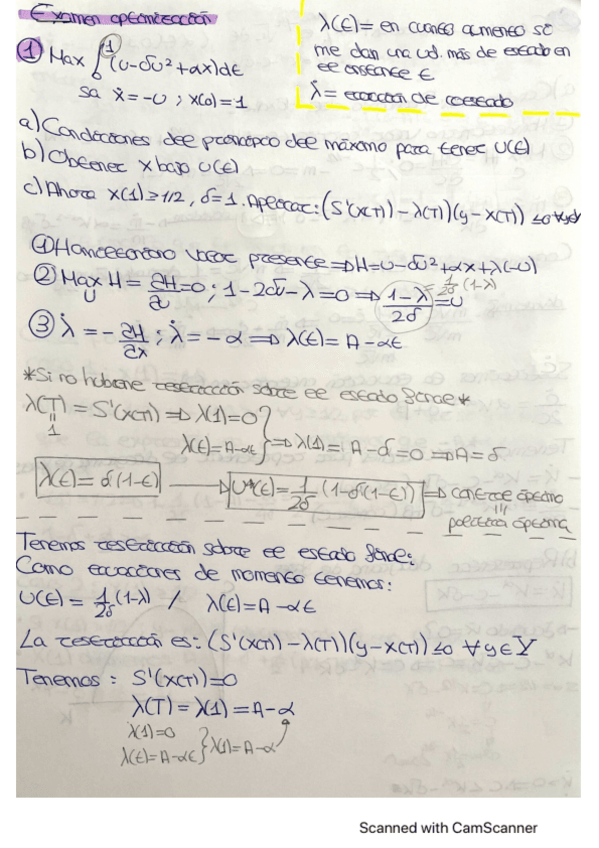 Examen optimización
① Max ∫₀¹ (u-δu²+αx)dt
sa ẋ=-u ; x(0)=1
λ(t)= en cuanto aumento si
me dan una ud. más de estado en
el instante t
λ̇= ecuación de coestado
a) Condiciones del principio del máximo para tener U(t)
b) Obtener x bajo U(t)
c) Ahora x(1)≥1/2, δ=1. Aplicar: (S'(x(T))-λ(T))(y-x(T)) ≤0 ∀y∈
① Hamiltoniano valor presente ⇒ H=u-δu²+αx+λ(-u)
② Max H = ∂H/∂u =0 ; 1-2δu-λ=0 ⇒ (1-λ)/2δ =u = 1/2δ (1-λ)
U
③ λ̇ = -∂H/∂x ; λ̇ = -α ⇒ λ(t)= A-αt
*Si no hubiere restricción sobre el estado final*
λ(T) = S'(x(T)) ⇒ λ(1)=0
1
λ(t)=A-αt } ⇒ λ(1)= A-δ=0 ⇒ A=δ
λ(t)= δ(1-t) → U*(t)= 1/2δ (1-δ(1-t)) ⇒ control óptimo
política óptima
Tenemos restricción sobre el estado final:
Como ecuaciones de momento tenemos:
U(t) = 1/2δ (1-λ) / λ(t)=A-αt
La restricción es: (S'(x(T)) -λ(T))(y-x(T)) ≤0 ∀y∈Y
Tenemos: S'(x(T))=0
λ(T)=λ(1)=A-α
λ(1)=0
λ(t)=A-αt } λ(1)=A-α
Scanned with CamScanner